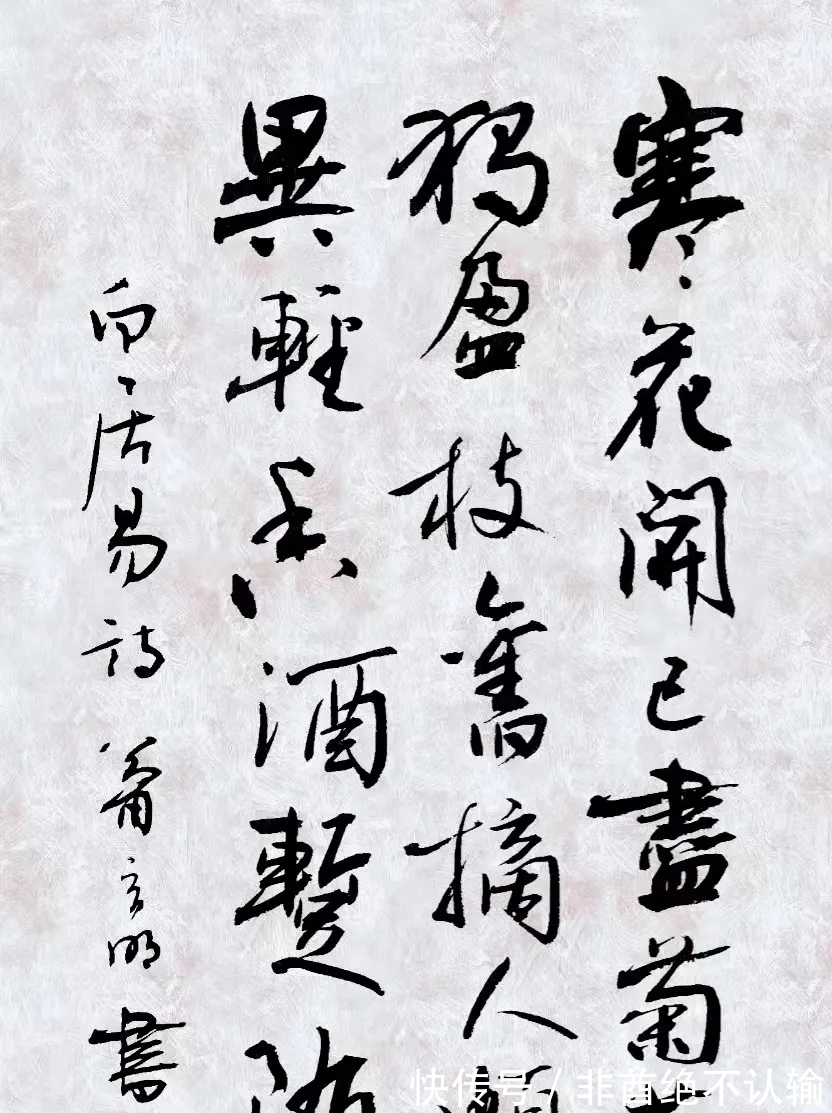 寒花開已盡菊
獨盈枝舊摘人
異輕香酒暫隨
白居易詩 言明書
快传号 / 非酋绝不认输